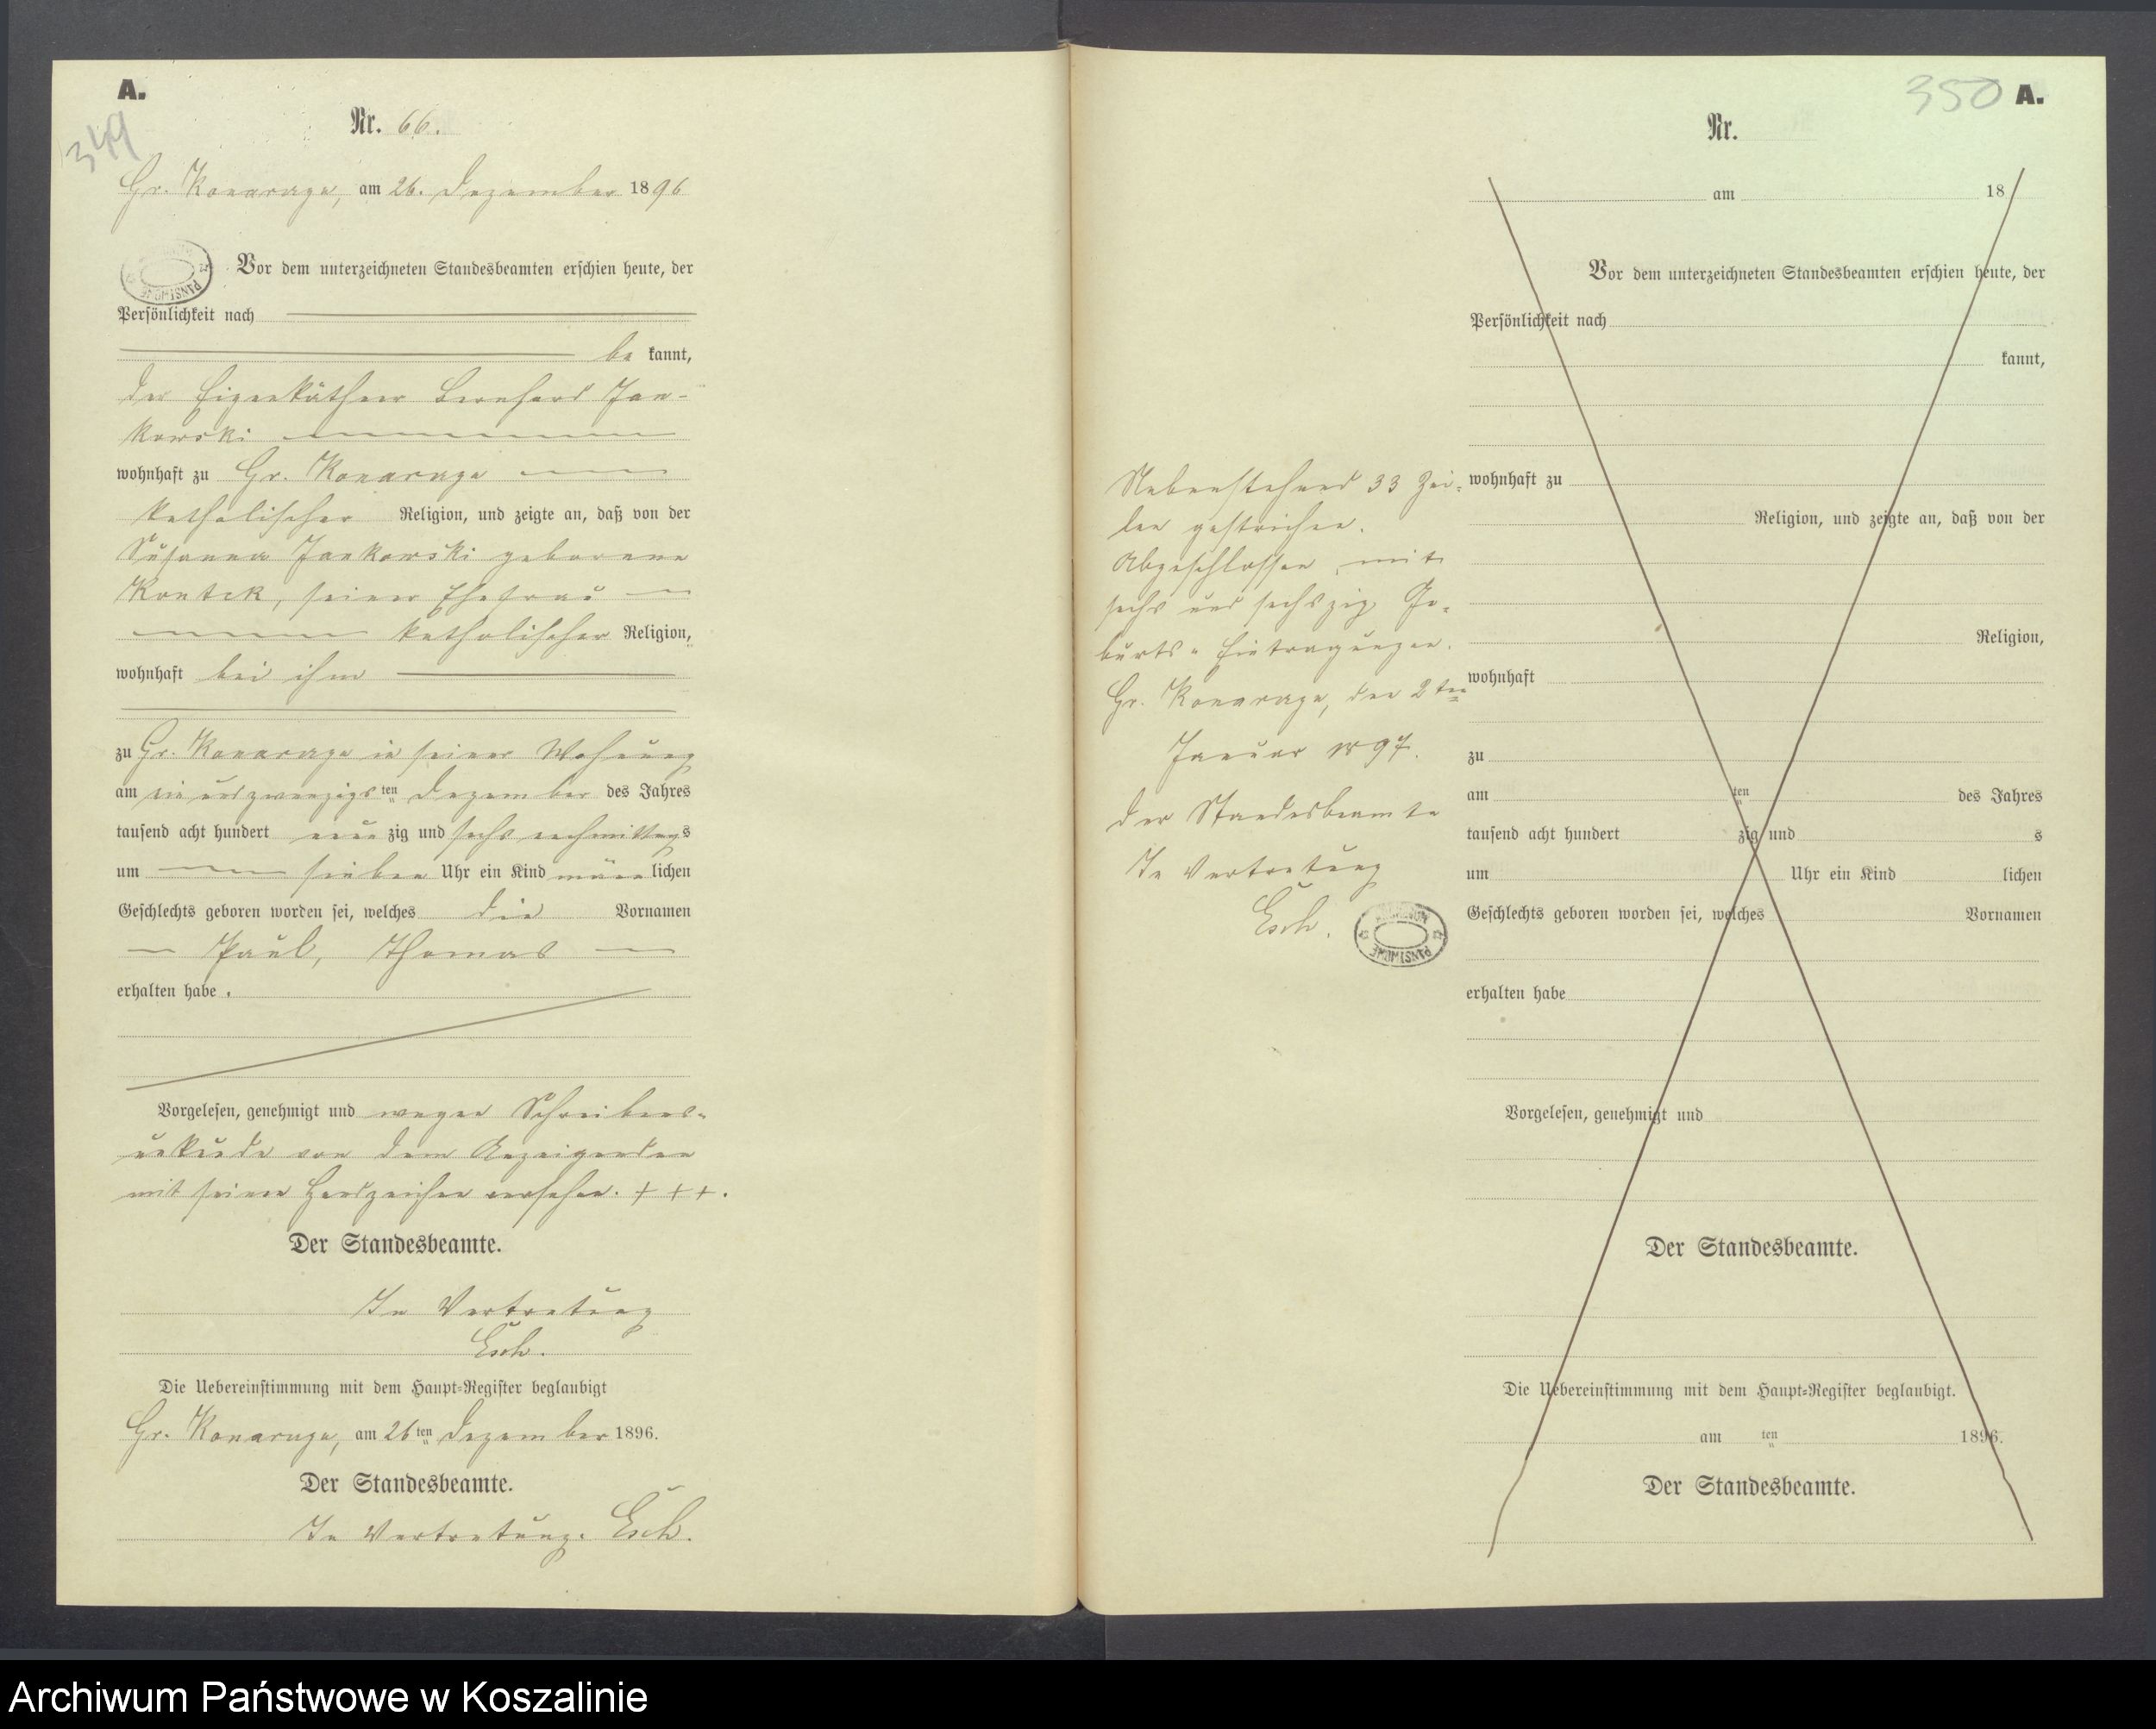 A.
349
Nr. 66.
Gr. Konarzyn, am 26. Dezember 1896
Vor dem unterzeichneten Standesbeamten erschien heute, der
Persönlichkeit nach
be kannt,
der Eigenkäthner Bernhard Jan-
kowski
wohnhaft zu Gr. Konarzyn
katholischer Religion, und zeigte an, daß von der
Susanna Jankowski geborene
seiner Ehefrau
katholischer Religion,
wohnhaft bei ihm
zu Gr. Konarzyn in seiner Wohnung
am ein und zwanzigs ten Dezember des Jahres
tausend acht hundert neun zig und sechs nachmittags
um sieben Uhr ein Kind männ lichen
Geschlechts geboren worden sei, welches die Vornamen
Paul, Thomas
erhalten habe.
Vorgelesen, genehmigt und wegen Schreibens-
unkunde von dem Anzeigenden
mit seinen Handzeichen versehen. + + +.
Der Standesbeamte.
In Vertretung
Esch.
Die Uebereinstimmung mit dem Haupt-Register beglaubigt
Gr. Konarzyn, am 26 ten Dezember 1896.
Der Standesbeamte.
In Vertretung. Esch.
350 A.
Nr.
am 18
Vor dem unterzeichneten Standesbeamten erschien heute, der
Persönlichkeit nach
kannt,
Nebenstehend 33 Zei-
len gestrichen.
Abgeschlossen mit
sechs und sechszig Ge-
burts-Eintragungen.
Gr. Konarzyn, den 2 ten
Januar 1897.
Der Standesbeamte
In Vertretung
Esch.
wohnhaft zu
Religion, und zeigte an, daß von der
Religion,
wohnhaft
zu
am ten des Jahres
tausend acht hundert zig und s
um Uhr ein Kind lichen
Geschlechts geboren worden sei, welches Vornamen
erhalten habe
Vorgelesen, genehmigt und
Der Standesbeamte.
Die Uebereinstimmung mit dem Haupt-Register beglaubigt.
am ten 1896.
Der Standesbeamte.
Archiwum Państwowe w Koszalinie